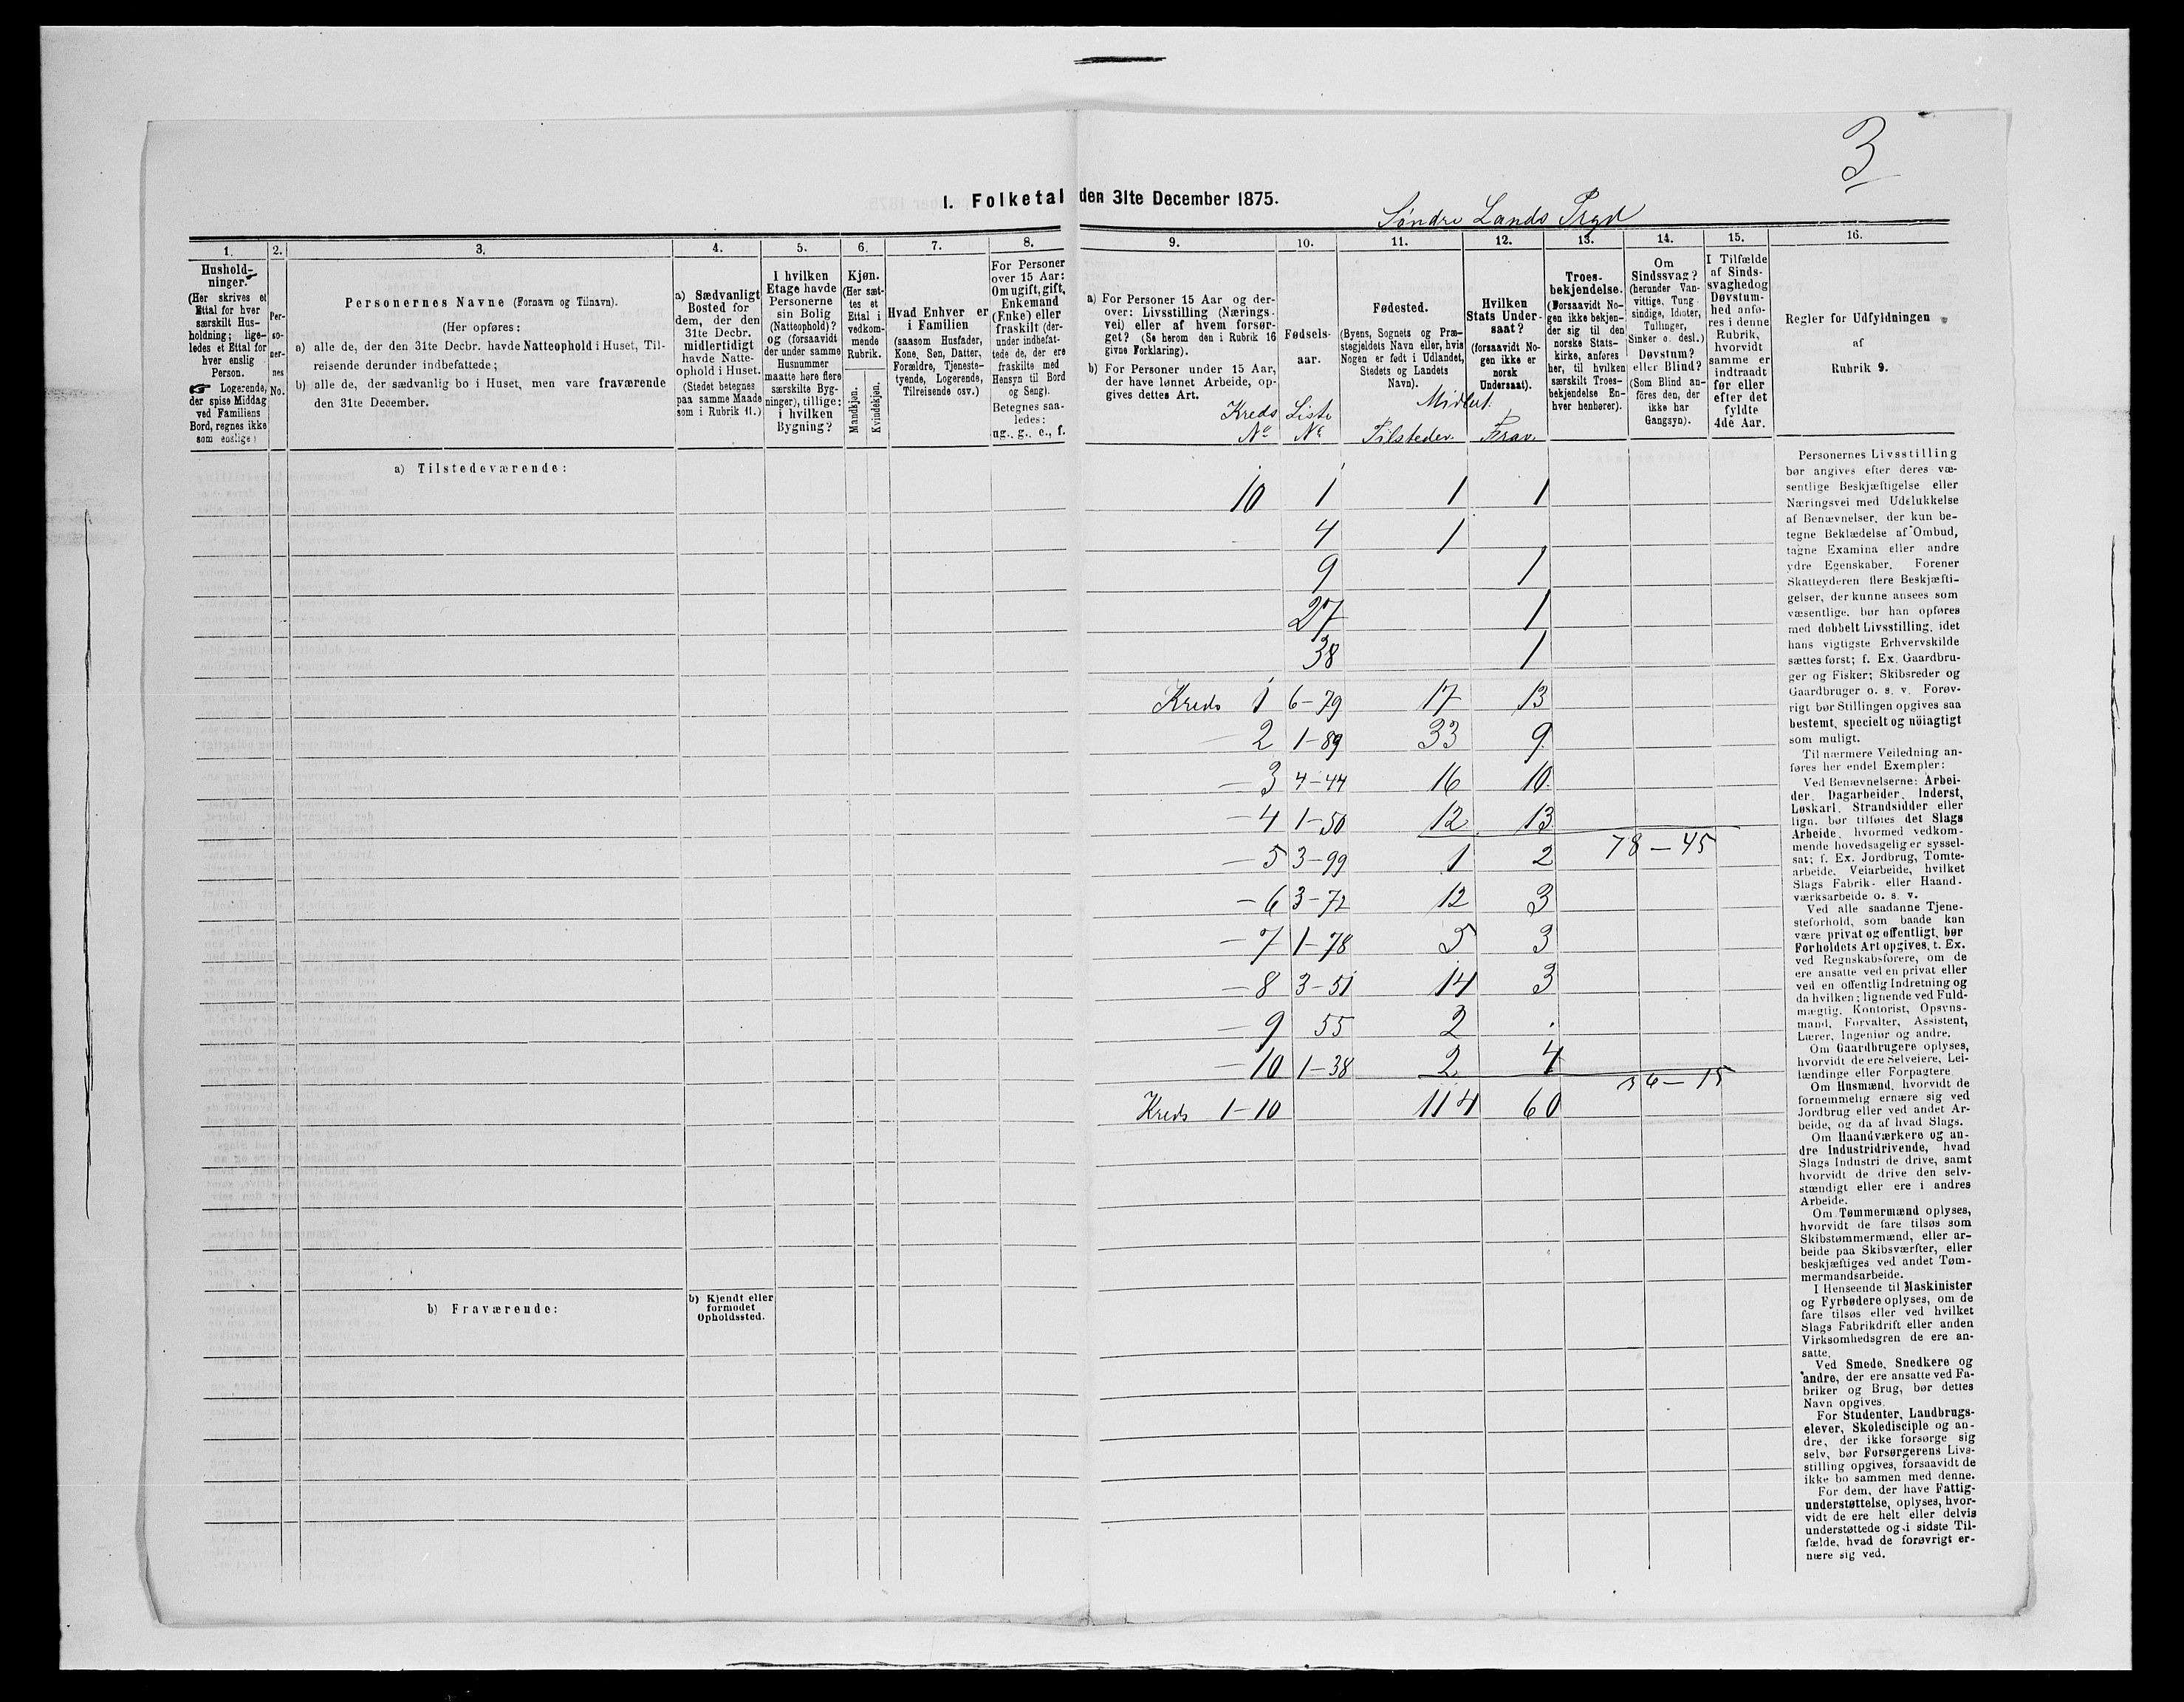 3
I. Folketal den 31te December 1875.
Søndre Lands Prgd
1. 2. 3. 4. 5. 6. 7. 8. 9. 10. 11. 12. 13. 14. 15. 16.
Hushold-
ninger.
(Her skrives et
Ettal for hver
særskilt Hus-
holdning; lige-
ledes et Ettal for
hver enslig
Person.
☞ Logerende,
der spise Middag
ved Familiens
Bord, regnes ikke
som enslige)
Per-
so-
ner-
nes
No.
Personernes Navne (Fornavn og Tilnavn).
(Her opføres:
a) alle de, der den 31te Decbr. havde Natteophold i Huset, Til-
reisende derunder indbefattede;
b) alle de, der sædvanlig bo i Huset, men vare fraværende
den 31te December.
a) Sædvanligt
Bosted for
dem, der den
31te Decbr.
midlertidigt
havde Natte-
ophold i Huset.
(Stedet betegnes
paa samme Maade
som i Rubrik 11.)
I hvilken
Etage havde
Personerne
sin Bolig
(Natteophold)?
og (forsaavidt
der under samme
Husnummer
maatte høre flere
særskilte Byg-
ninger), tillige:
i hvilken
Bygning?
Kjøn.
(Her sæt-
tes et
Ettal i
vedkom-
mende
Rubrik.
Mandkjøn.
Kvindekjøn.
Hvad Enhver er
i Familien
(saasom Husfader,
Kone, Søn, Datter,
Forældre, Tjeneste-
tyende, Logerende,
Tilreisende osv.)
For Personer
over 15 Aar:
Om ugift, gift,
Enkemand
(Enke) eller
fraskilt (der-
under indbefat-
tede de, der ere
fraskilte med
Hensyn til Bord
og Seng).
Betegnes saa-
ledes:
ug., g., e., f.
a) For Personer 15 Aar og der-
over: Livsstilling (Nærings-
vei) eller af hvem forsør-
get? (Se herom den i Rubrik 16
givne Forklaring).
b) For Personer under 15 Aar,
der have lønnet Arbeide, op-
gives dettes Art.
Fødsels-
aar.
Fødested.
(Byens, Sognets og Præ-
stegjeldets Navn eller, hvis
Nogen er født i Udlandet,
Stedets og Landets
Navn).
Hvilken
Stats Under-
saat?
(forsaavidt No-
gen ikke er
norsk
Undersaat).
Troes-
bekjendelse.
(Forsaavidt No-
gen ikke bekjen-
der sig til den
norske Stats-
kirke, anføres
her, til hvilken
særskilt Troes-
bekjendelse En-
hver henhører).
Om
Sindssvag?
(herunder Van-
vittige, Tung-
sindige, Idioter,
Tullinger,
Sinker o. desl.)
Døvstum?
eller Blind?
(Som Blind an-
føres den, der
ikke har
Gangsyn).
I Tilfælde
af Sinds-
svaghed og
Døvstum-
hed anfø-
res i denne
Rubrik,
hvorvidt
samme er
indtraadt
før eller
efter det
fyldte
4de Aar.
Regler for Udfyldningen
af
Rubrik 9.
Kreds Liste Midlert.
No No Tilstedev. Frav.
a) Tilstedeværende:
10 1 1 1
4 1
9 1
27 1
38 1
Kreds 1 6-79 17 13
- 2 1-89 33 9
- 3 4-44 16 10
- 4 1-50 12 13
78-45
- 5 3-99 1 2
- 6 3-72 12 3
- 7 1-78 5 3
- 8 3-51 14 3
- 9 55 2 .
- 10 1-38 2 4
36-15
Kreds 1-10 114 60
b) Fraværende:
b) Kjendt eller
formodet
Opholdssted.
Personernes Livsstilling
bør angives efter deres væ-
sentlige Beskjæftigelse eller
Næringsvei med Udelukkelse
af Benævnelser, der kun be-
tegne Beklædelse af Ombud,
tagne Examina eller andre
ydre Egenskaber. Forener
Skatteyderen flere Beskjæfti-
gelser, der kunne ansees som
væsentlige, bør han opføres
med dobbelt Livsstilling, idet
hans vigtigste Erhvervskilde
sættes først; f. Ex. Gaardbru-
ger og Fisker; Skibsreder og
Gaardbruger o. s. v. Forøv-
rigt bør Stillingen opgives saa
bestemt, specielt og nöiagtigt
som muligt.
Til nærmere Veiledning an-
føres her endel Exempler:
Ved Benævnelserne: Arbei-
der, Dagarbeider, Inderst,
Løskarl, Strandsidder eller
lign. bør tilføies det Slags
Arbeide, hvormed vedkom-
mende hovedsagelig er syssel-
sat; f. Ex. Jordbrug, Tomte-
arbeide, Veiarbeide, hvilket
Slags Fabrik- eller Haand-
værksarbeide o. s. v.
Ved alle saadanne Tjene-
steforhold, som baade kan
være privat og offentligt, bør
Forholdets Art opgives, t. Ex.
ved Regnskabsførere, om de
ere ansatte ved en privat eller
ved en offentlig Indretning og
da hvilken; lignende ved Fuld-
mægtig, Kontorist, Opsyns-
mand, Forvalter, Assistent,
Lærer, Ingeniør og andre.
Om Gaardbrugere oplyses,
hvorvidt de ere Selveiere, Lei-
lændinge eller Forpagtere.
Om Husmænd, hvorvidt de
fornemmelig ernære sig ved
Jordbrug eller ved andet Ar-
beide, og da af hvad Slags.
Om Haandværkere og an-
dre Industridrivende, hvad
Slags Industri de drive, samt
hvorvidt de drive den selv-
stændigt eller ere i andres
Arbeide.
Om Tømmermænd oplyses,
hvorvidt de fare tilsøs som
Skibstømmermænd, eller ar-
beide paa Skibsværfter, eller
beskjæftiges ved andet Tøm-
mermandsarbeide.
I Henseende til Maskinister
og Fyrbødere oplyses, om de
fare tilsøs eller ved hvilket
Slags Fabrikdrift eller anden
Virksomhedsgren de ere an-
satte.
Ved Smede, Snedkere og
andre, der ere ansatte ved Fa-
briker og Brug, bør dettes
Navn opgives.
For Studenter, Landbrugs-
elever, Skoledisciple og an-
dre, der ikke forsørge sig
selv, bør Forsørgerens Livs-
stilling opgives, forsaavidt de
ikke bo sammen med denne.
For dem, der have Fattig-
understøttelse, oplyses, hvor-
vidt de ere helt eller delvis
understøttede og i sidste Til-
fælde, hvad de forøvrigt er-
nære sig ved.